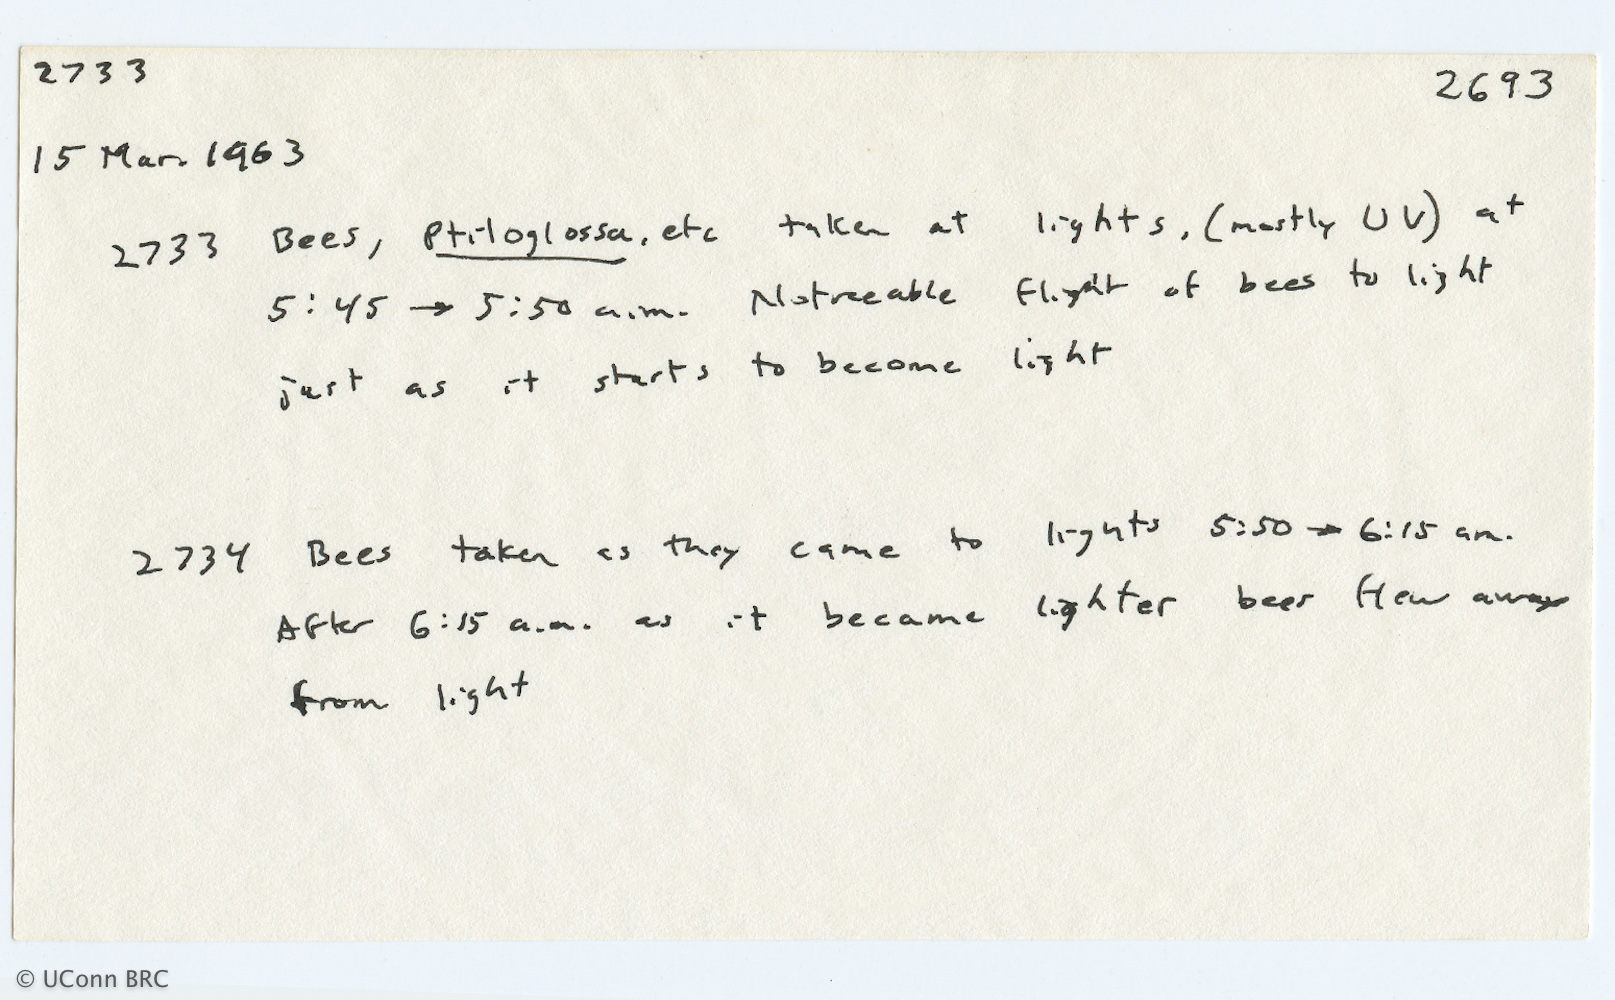 2733 2693
15 Mar. 1963
2733 Bees, Ptiloglossa, etc taken at lights, (mostly UV) at
5:45 → 5:50 a.m. Noticeable flight of bees to light
just as it starts to become light
2734 Bees taken as they came to lights 5:50 → 6:15 am.
After 6:15 a.m. as it became lighter bees flew away
from light
© UConn BRC